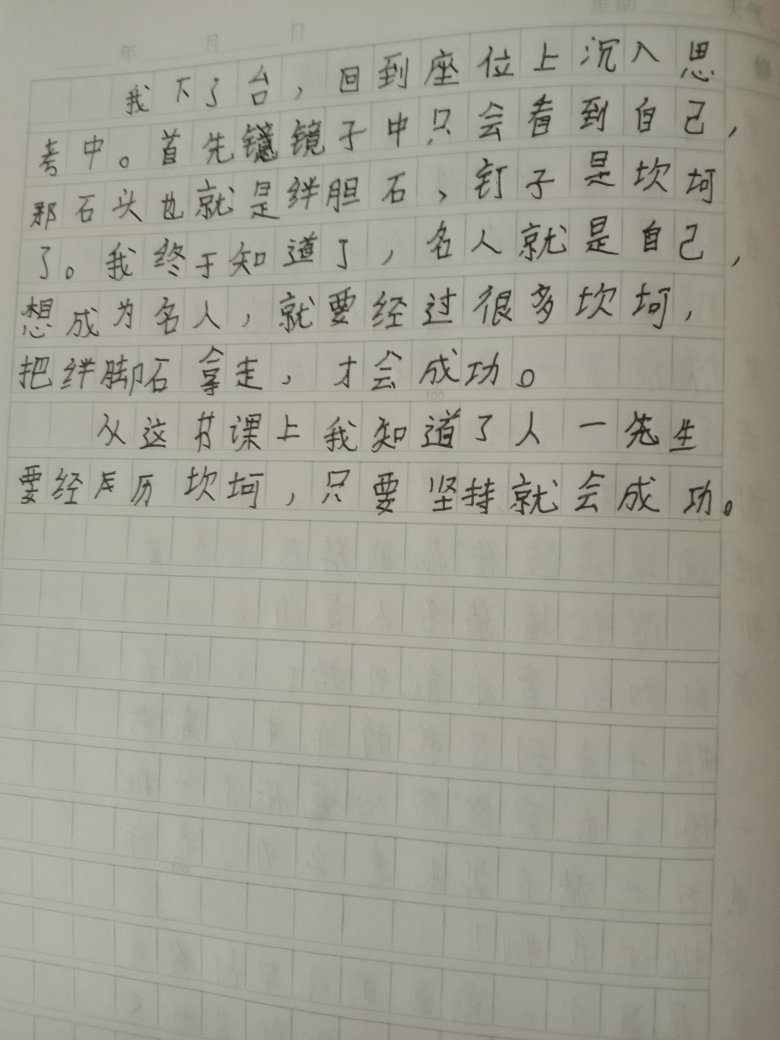 星期 天气
年 月 日
我下了台，回到座位上沉入思
考中。首先镜镜子中只会看到自己，
那石头也就是绊胆石、钉子是坎坷
了。我终于知道了，名人就是自己，
想成为名人，就要经过很多坎坷，
把绊脚石拿走，才会成功。
100
从这节课上我知道了人一先生
要经历坎坷，只要坚持就会成功。
200